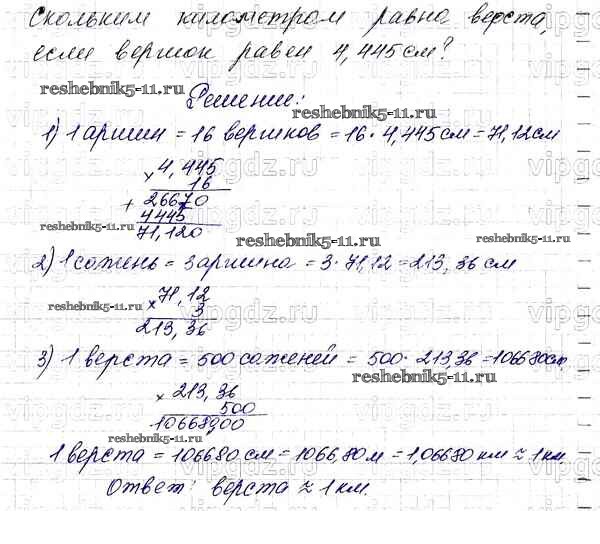 Скольким километрам равна верста,
если вершок равен 4,445 см?
reshebnik5-11.ru
Решение:
1) 1 аршин = 16 вершков = 16 · 4,445 см = 71,12 см
× 4,445
16
+ 26670
4445
71,120
reshebnik5-11.ru
reshebnik5-11.ru
2) 1 сажень = 3 аршина = 3 · 71,12 = 213,36 см
reshebnik5-11.ru
× 71,12
3
213,36
3) 1 верста = 500 саженей = 500 · 213,36 = 106680 см
reshebnik5-11.ru
× 213,36
500
106680,00
reshebnik5-11.ru
1 верста = 106680 см = 1066,80 м = 1,06680 км ≈ 1 км
Ответ: верста ≈ 1 км.
vipgdz.ru